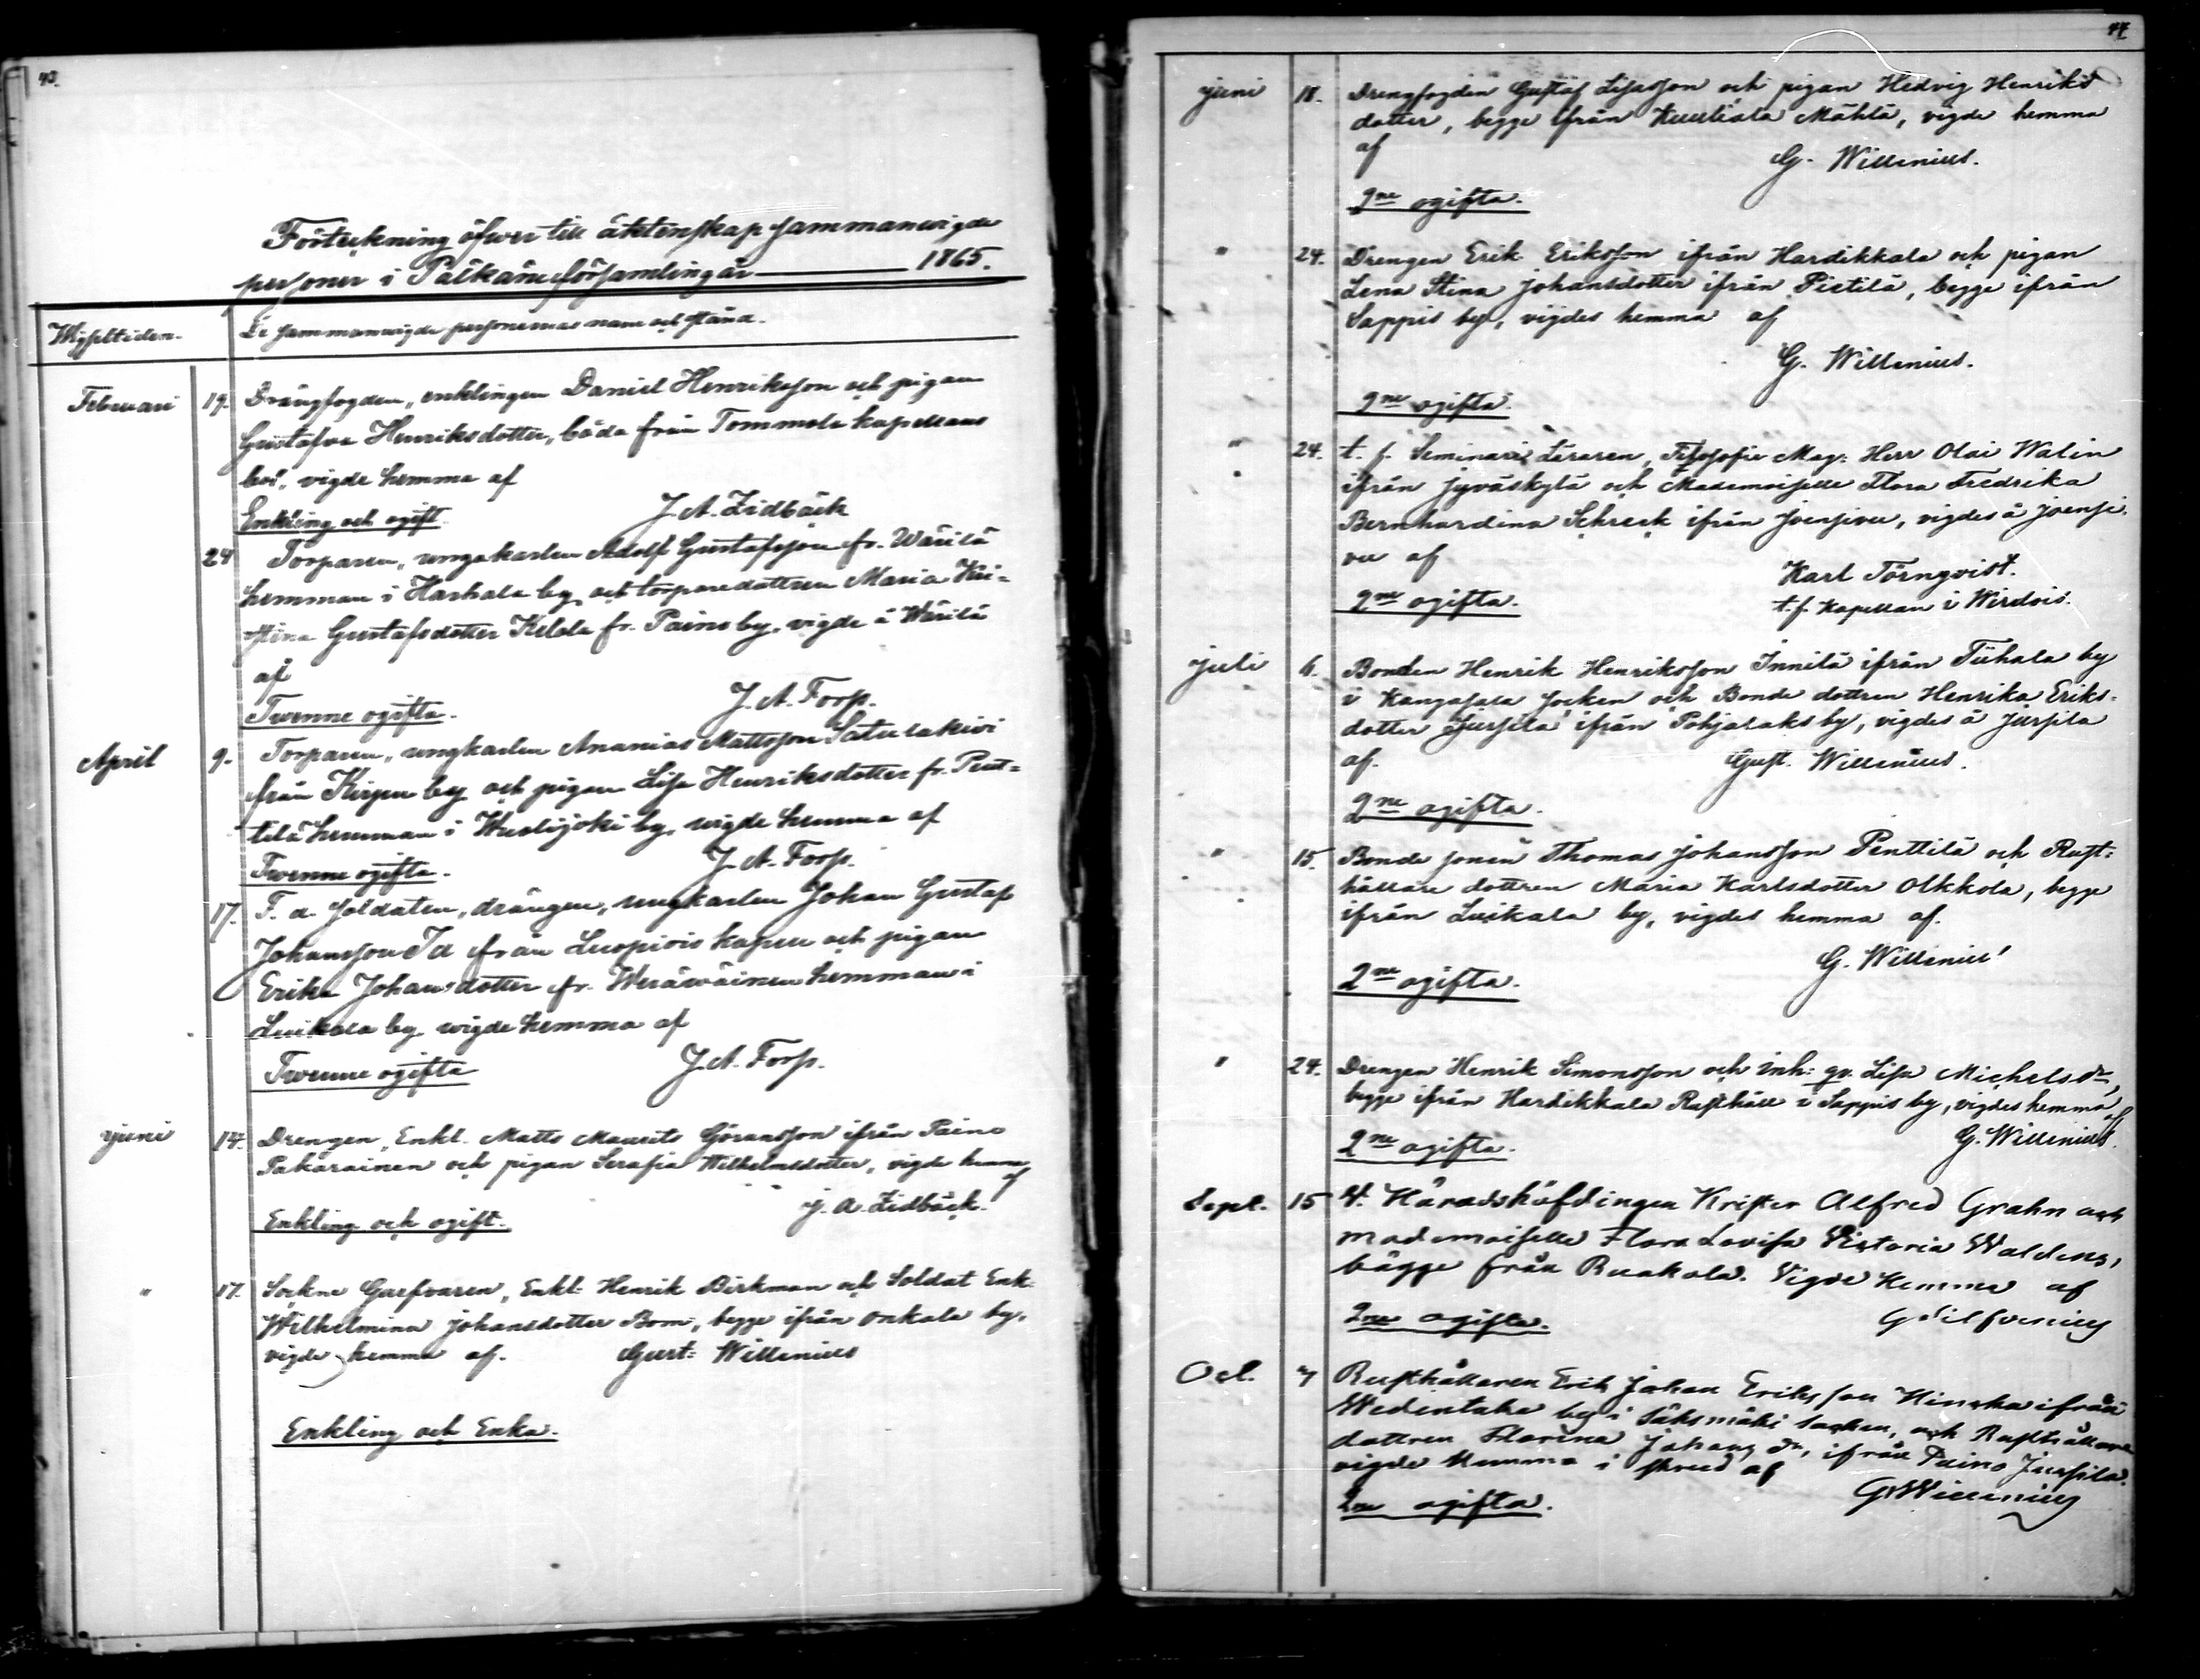 43.
Förteckning öfwer till äktenskap sammanwigde
personer i Pälkäne församling år 1865.
Wigseltiden.
De sammanwigde personernas namn och stånd.
Februari 19. Drängfogden, enklingen Daniel Henriksson och pigan
Gustafva Henriksdotter, båda från Tommola kapellans
bol, vigde hemma af
Enkling och ogift. J. A. Lidbäck
24 Torparen, ungakarlen Adolf Gustafsson fr. Wärilä
hemman i Harhala by, och torparedottren Maria Kri-
stina Gustafsdotter Kelola fr. Paino by, vigde å Wärilä
af
Twenne ogifta. J. A. Forss.
April 9. Torparen, ungkarlen Ananias Mattsson Satulakivi
från Kirpu by och pigan Lisa Henriksdotter fr. Pent-
tilä hemman i Wuolijoki by, wigde hemma af
Twenne ogifta. J. A. Forss.
17. F. d. Soldaten, drängen, ungkarlen Johan Gustaf
Johansson Id från Luopiois kapell och pigan
Erika Johansdotter fr. Weräwäinen hemman i
Luikala by, wigde hemma af
Twenne ogifta J. A. Forss.
Juni 14. Drengen, Enkl. Matts Maurits Göransson ifrån Paino
Pakarainen och pigan Serafia Wilhelmsdotter, vigde hemma
af
Enkling och ogift. J. A. Lidbäck.
" 17. Sockne Garfvaren, Enkl: Henrik Birkman och Soldat Enk.
Wilhelmina Johansdotter Bom, begge ifrån Onkala by,
vigde hemma af. Gust: Willenius
Enkling och Enka.
44.
Juni 18. Drengfogden Gustaf Lisasson och pigan Hedvig Henriks
dotter, begge ifrån Kuuliala Mähtä, vigde hemma
af
G. Willenius.
2ne ogifta.
" 24. Drengen Erik Eriksson ifrån Hardikkala och pigan
Lena Stina Johansdotter ifrån Pietilä, begge ifrån
Sappis by, vigdes hemma af
G. Willenius.
2ne ogifta.
" 24. t. f. Seminarii Läraren, Filosofie Mag: Herr Olai Walin
ifrån Jyväskylä och Mademoiselle Flora Fredrika
Bernhardina Schreck ifrån Joensivu, vigdes å Joensi-
vu af
Karl Törnqvist.
2ne ogifta. t.f. Kapellan i Wirdois.
Juli 6. Bonden Henrik Henriksson Innilä ifrån Tiihala by
i Kangasala Socken och Bonde dottren Henrika Eriks-
dotter Jussila ifrån Pohjalaks by, vigdes å Jussila
af. Gust. Willenius.
2ne ogifta.
" 15. Bonde sonen Thomas Johansson Penttilä och Rust-
hållare dottren Maria Karlsdotter Olkkola, begge
ifrån Luikala by, vigdes hemma af.
G. Willenius
2ne ogifta.
" 24. Drengen Henrik Simonsson och inh: qv. Lisa Michelsdr,
begge ifrån Hardikkala Rusthåll i Sappis by, vigdes hemma
af
2ne ogifta. G. Willenius.
Sept. 15 V. Häradshöfdingen Krister Alfred Grahn och
mademoiselle Flora Lovisa Victoria Waldens,
bägge från Ruokola. Vigde hemma af
2ne ogifta. G Silfvenius
Oct. 7 Rusthållaren Erik Johan Eriksson Hinska ifrån
Wedentaka by i Säksmäki socken, och Rusthållare
dottren Florina Johans dr, ifrån Paino Jussila.
vigde hemma i skrud af
2ne ogifta. G. Willenius